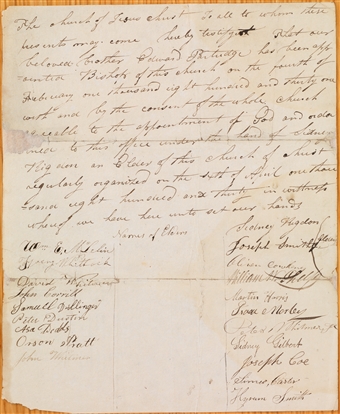 The church of Jesus christ To all to whom these
presents may come hereby testify that our
beloved brother Edward Partridge has been app
ointed Bishop of this church on the fourth of
February one thousand eight hundred and thirty one
and by the consent of the whole church
agreeable to the appointment of God and orda
ined to this office under the hand of Sidney
Rigdon an Elder of this church of christ
regularly organized on the sixth of April one thou
sand eight hundred and thirty in witness
whereof we have here unto set our hands
Names of Elders
Sidney Rigdon
Joseph Smith
David Whitmer
John Corrill
Samuel
Peter Dustin
Asa Dodds
Orson Pratt
John Whitmer
William W. Phelps
Martin Harris
Isaac Morley
Whitmer Jr
Sidney Gilbert
Joseph Coe
Hyrum Smith